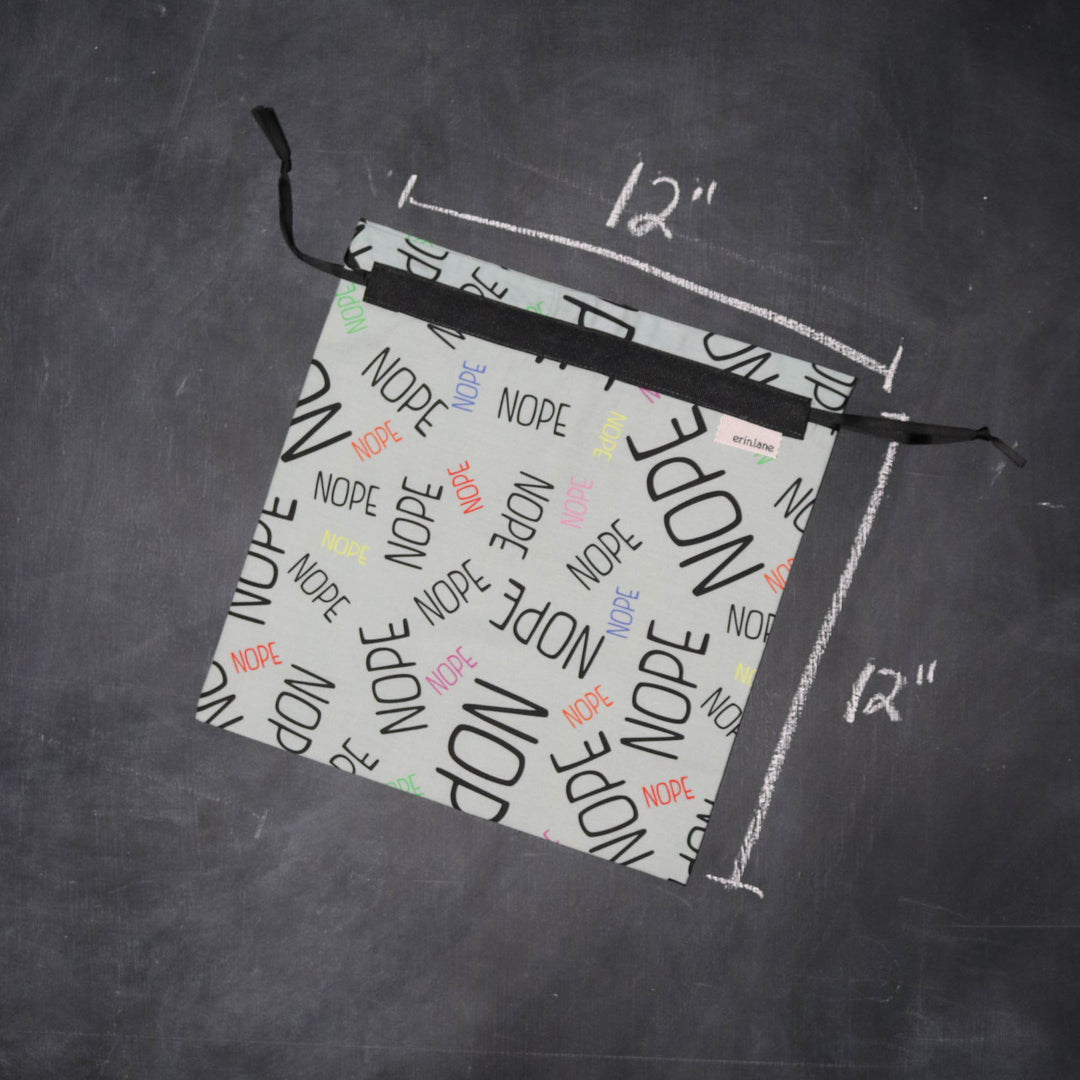 12"
NOPE
NOPE
NOPE
NOPE
NOPE
NOPE
NOPE
erin.lane
NOPE
NOPE
NOPE
NOPE
NOPE
NOPE
NOPE
NOPE
NOPE
NOPE
NOPE
NOPE
NOPE
NOPE
12"
NOPE
NOPE
NOPE
NOPE
NOPE
NOPE
NOPE